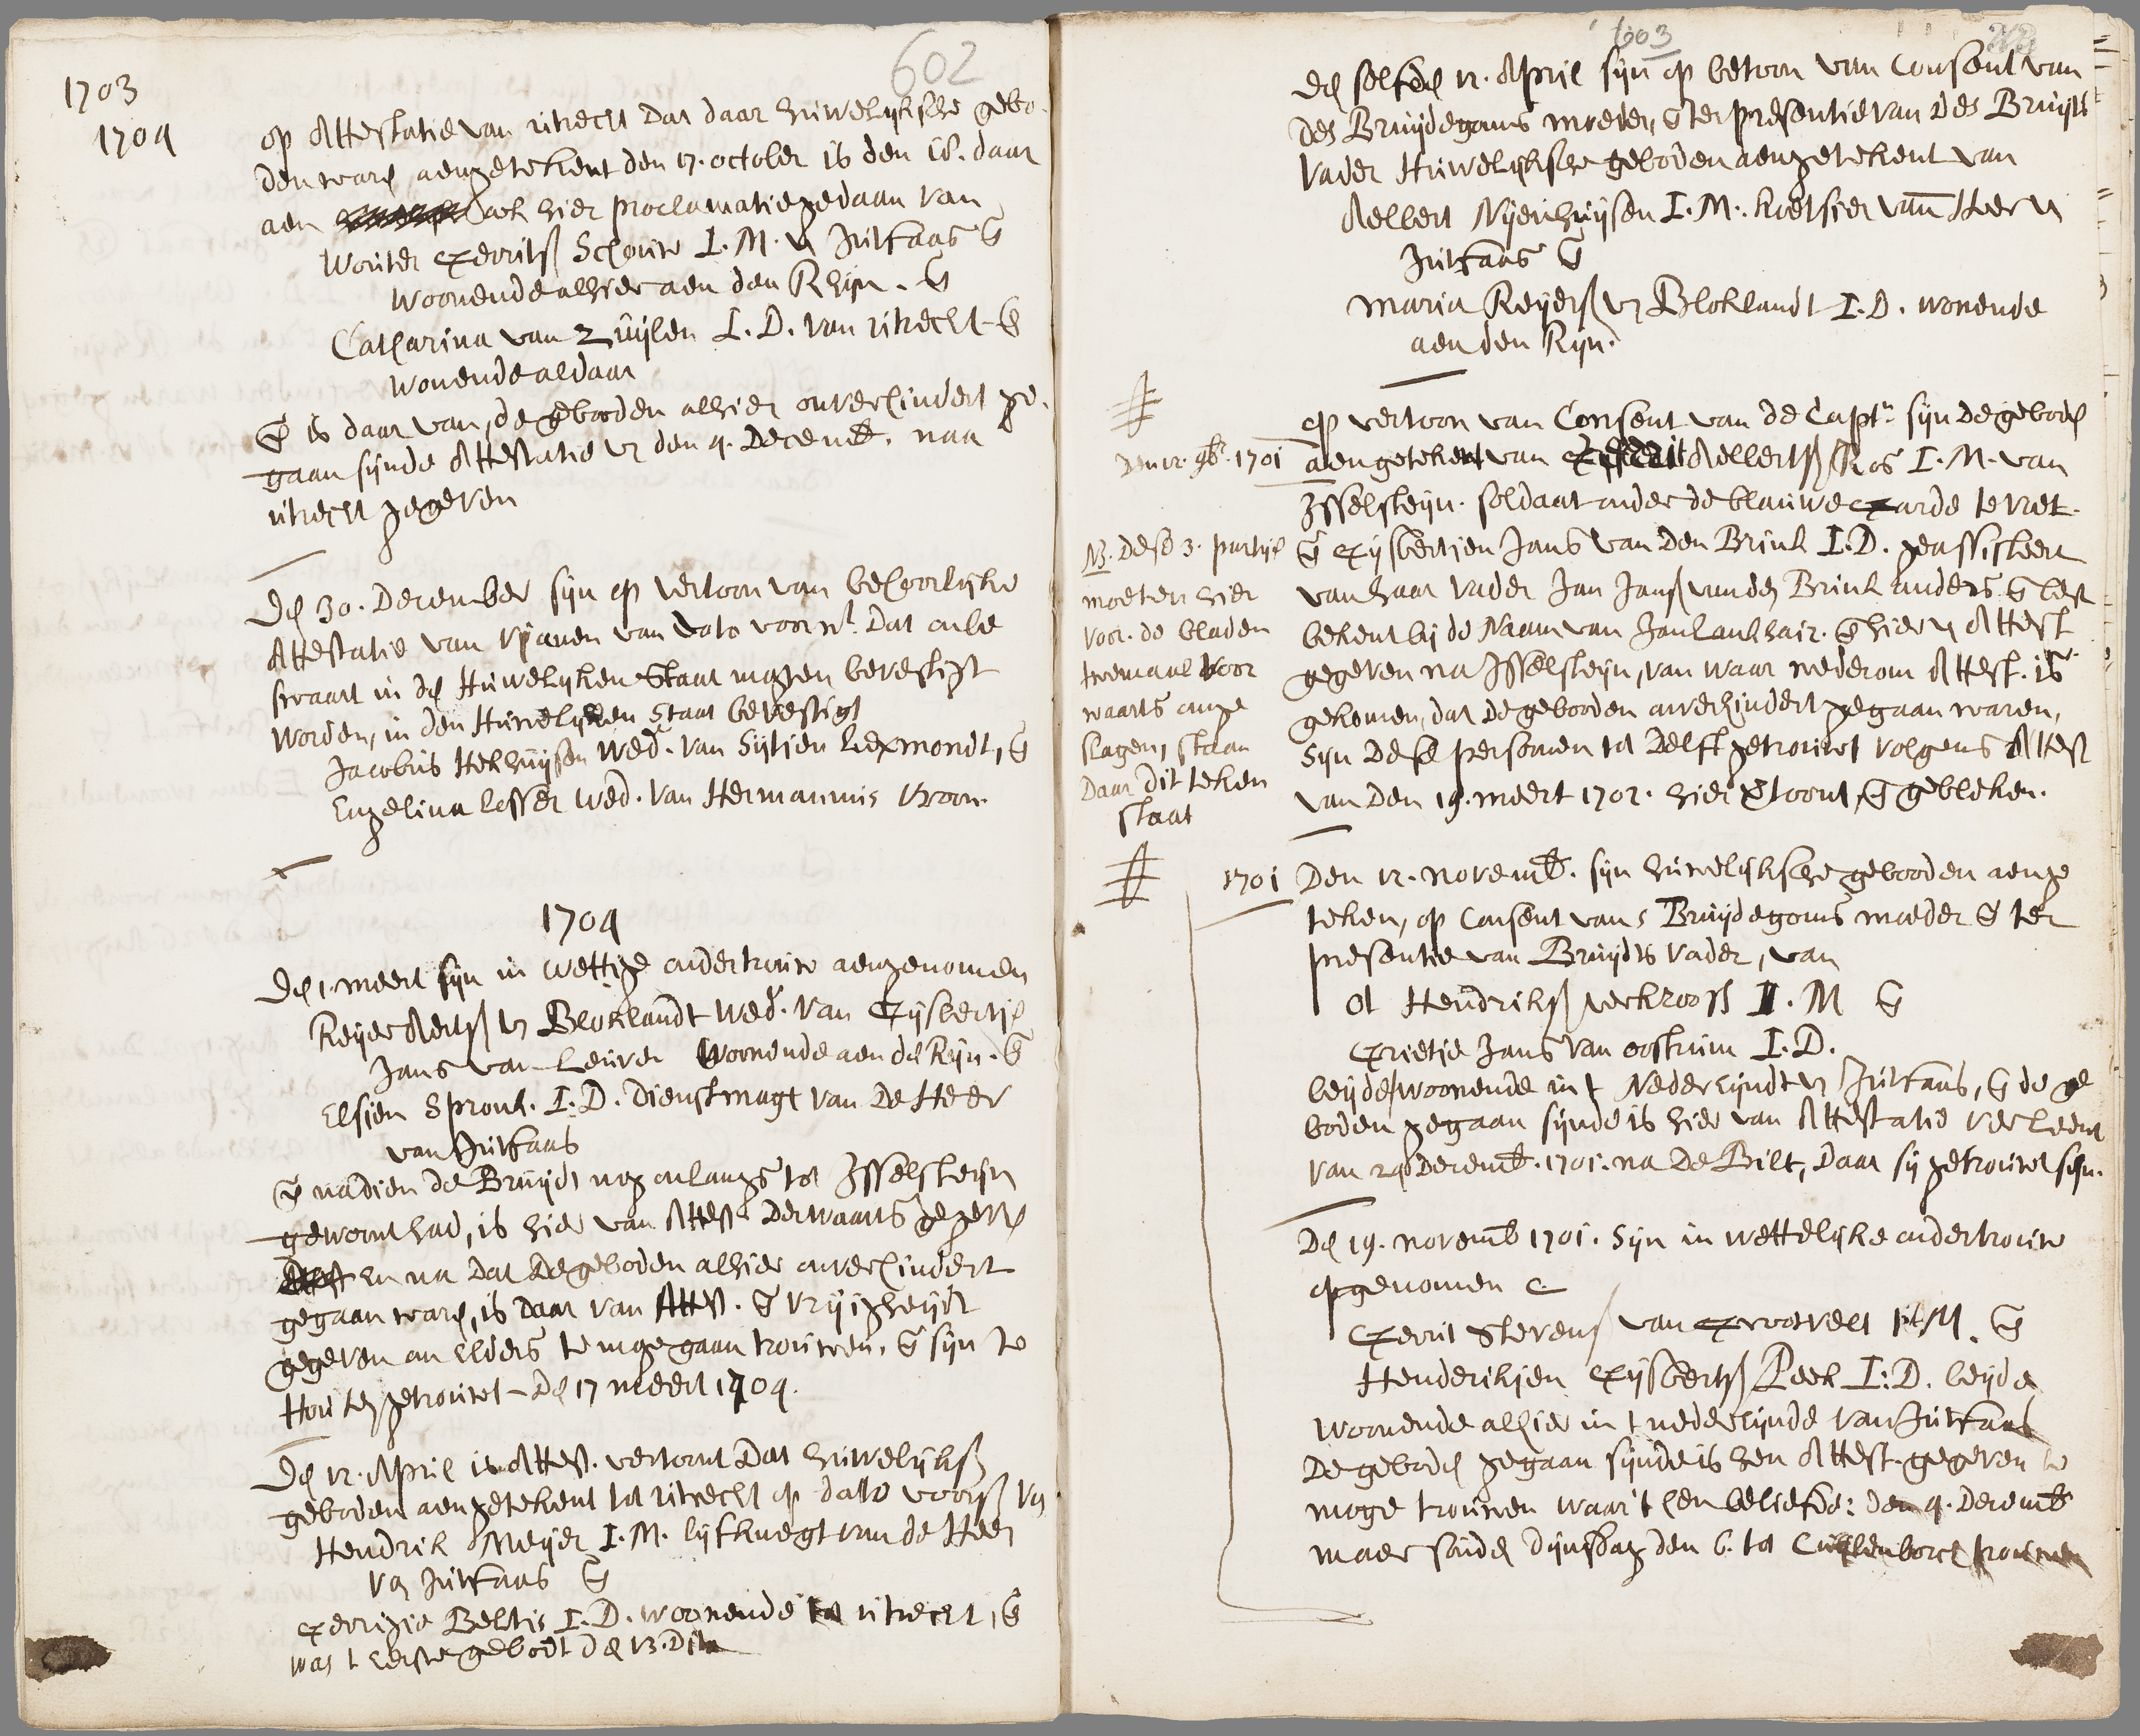 602
1703
1704
op Attestatie van uitrecht dat daar huwelijksche gebo-
den waren aengetekent den 17. october is den 18. daar
aen ook hier proclamatie gedaan van
Wouter Gerritss Schouw I. M. van Jutfaas en
woonende alhier aen den Rhijn. en
Catharina van Zuijlen I. D. van uitrecht en
wonende aldaar
en is daar van, de gebooden alhier onverhindert ge-
gaan sijnde Attestatie van den 4. Decemb. naa
uitrecht gegeven
Den 30. December sijn op vertoon van behoorlijke
Attestatie van Vianen van dato voorn. Dat onbe
swaart in den Huwelijken Staat mogen bevestigt
worden, in den Huwelijken Staat bevestigt
Jacobus Hekhuijsen Wed. van Sijtjen Lexmondt, en
Engelina Lesser Wed. van Hermannus Vroon
1704
Den 1. meert sijn in wettige ondertrouw aengenomen
Reijer Aertss van Bloklandt Wed. van Gijsbertje
Jans van Leuver Woonende aen de Rijn. en
Elsjen Spronk. I. D. Dienstmagt van de Heer
van Jutfaas
en nadien de Bruijdt nog onlangs tot Isselsteijn
gewoont had, is hier van Attest. Derwaarts gegeven
en na dat de geboden alhier onverhindert
gegaan waren, is daar van Attest. en vrijigheijdt
gegeven om elders te moge gaan trouwen, en sijn te
Houten getrouwt - Den 17 meert 1704.
Den 12. April is Attest. vertoont dat huwelijkss
geboden aengetekent tot uitrecht op dato voorss van
Hendrik Meijer I. M. lijfknegt van de Heer
van Jutfaas en
Gerrigie Beltis I. D. woonende tot uitrecht, en
was t Eerste gebodt den 13. Dito
603
Den selfden 12. April sijn op betoon van Consent van
des Bruijdegoms moeder, en ter presentie van des Bruijts
Vader Huwelijksche geboden aengetekent van
Aellert Nijenhuijsen I. M. koetsier van Heer van
Jutfaas en
Maria Reijerss van Bloklandt I. D. wonende
aen den Rijn.
op vertoon van Consent van de Capt. sijn de geboden
Den 12. 9br. 1701
aengetekent van Aellertss Ros I. M. van
Isselsteijn. soldaat onder de blauwe Garde te voet.
en Gijsbertjen Jans van den Brink I. D. geassisteert
van haar Vader Jan Janss van den Brink anders en best
bekent bij de Naam van Jan lankhair. en hier van Attest
gegeven na Isselsteijn, van waar wederom Attest. is
gekomen, dat de gebooden onverhindert gegaan waren,
Sijn dese personen tot Delft getrouwt volgens Attest
van den 19. meert 1702. hier vertoont, en gebleken.
NB. dese 3. partijen
moeten hier
voor. de bladen
tweemaal voor
waarts omge
slagen, staan
Daar dit teken
staat
1701
Den 12. novemb. sijn huwelijksche gebooden aenge
teken, op Consent van s Bruijdegoms moeder en ter
presentie van Bruijdts Vader, van
Ot Hendrikss verkrooss I. M en
Grietje Jans van oostrum I. D.
beijde woonende in t Nedereijndt van Jutfaas, en de ge
boden gegaan sijnde is hier van Attestatie verleent
van 24 Decemb. 1701. na De Bilt, Daar sij getrouwt sijn.
Den 19. novemb 1701. Sijn in wettelijke ondertrouw
opgenomen
Gerrit Stevenss van Grootvelt I. M. en
Henderikjen Gijsbertss Peek I: D. beijde
woonende alhier in t nedereijnde van Jutfaas
De geboden gegaan sijnde is hen Attest. gegeven te
moge trouwen waar't hen beliefde: den 4. Decemb
maer souden dijnsdag den 6. tot Cuijlenborch trouwen